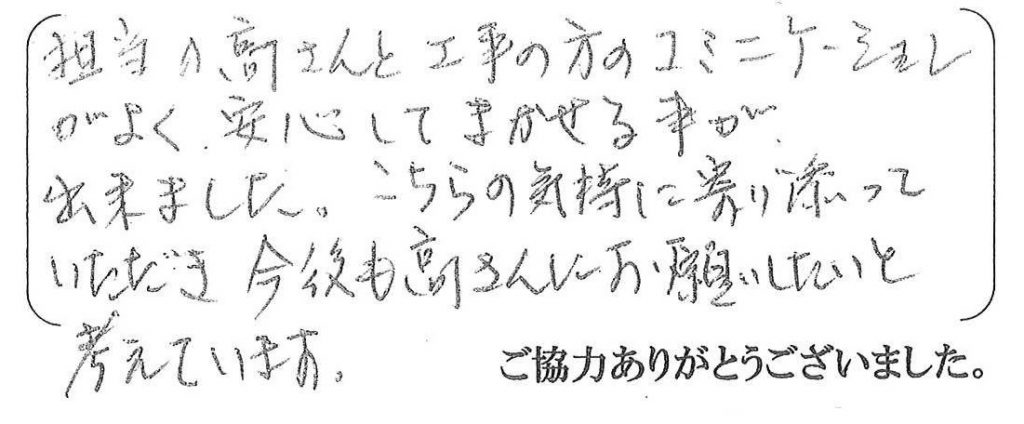 担当の高さんと工事の方のコミニケーション
がよく、安心してまかせる事が、
出来ました。こちらの気持に寄り添って
いただき今後も高さんにお願いしたいと
考えています。
ご協力ありがとうございました。